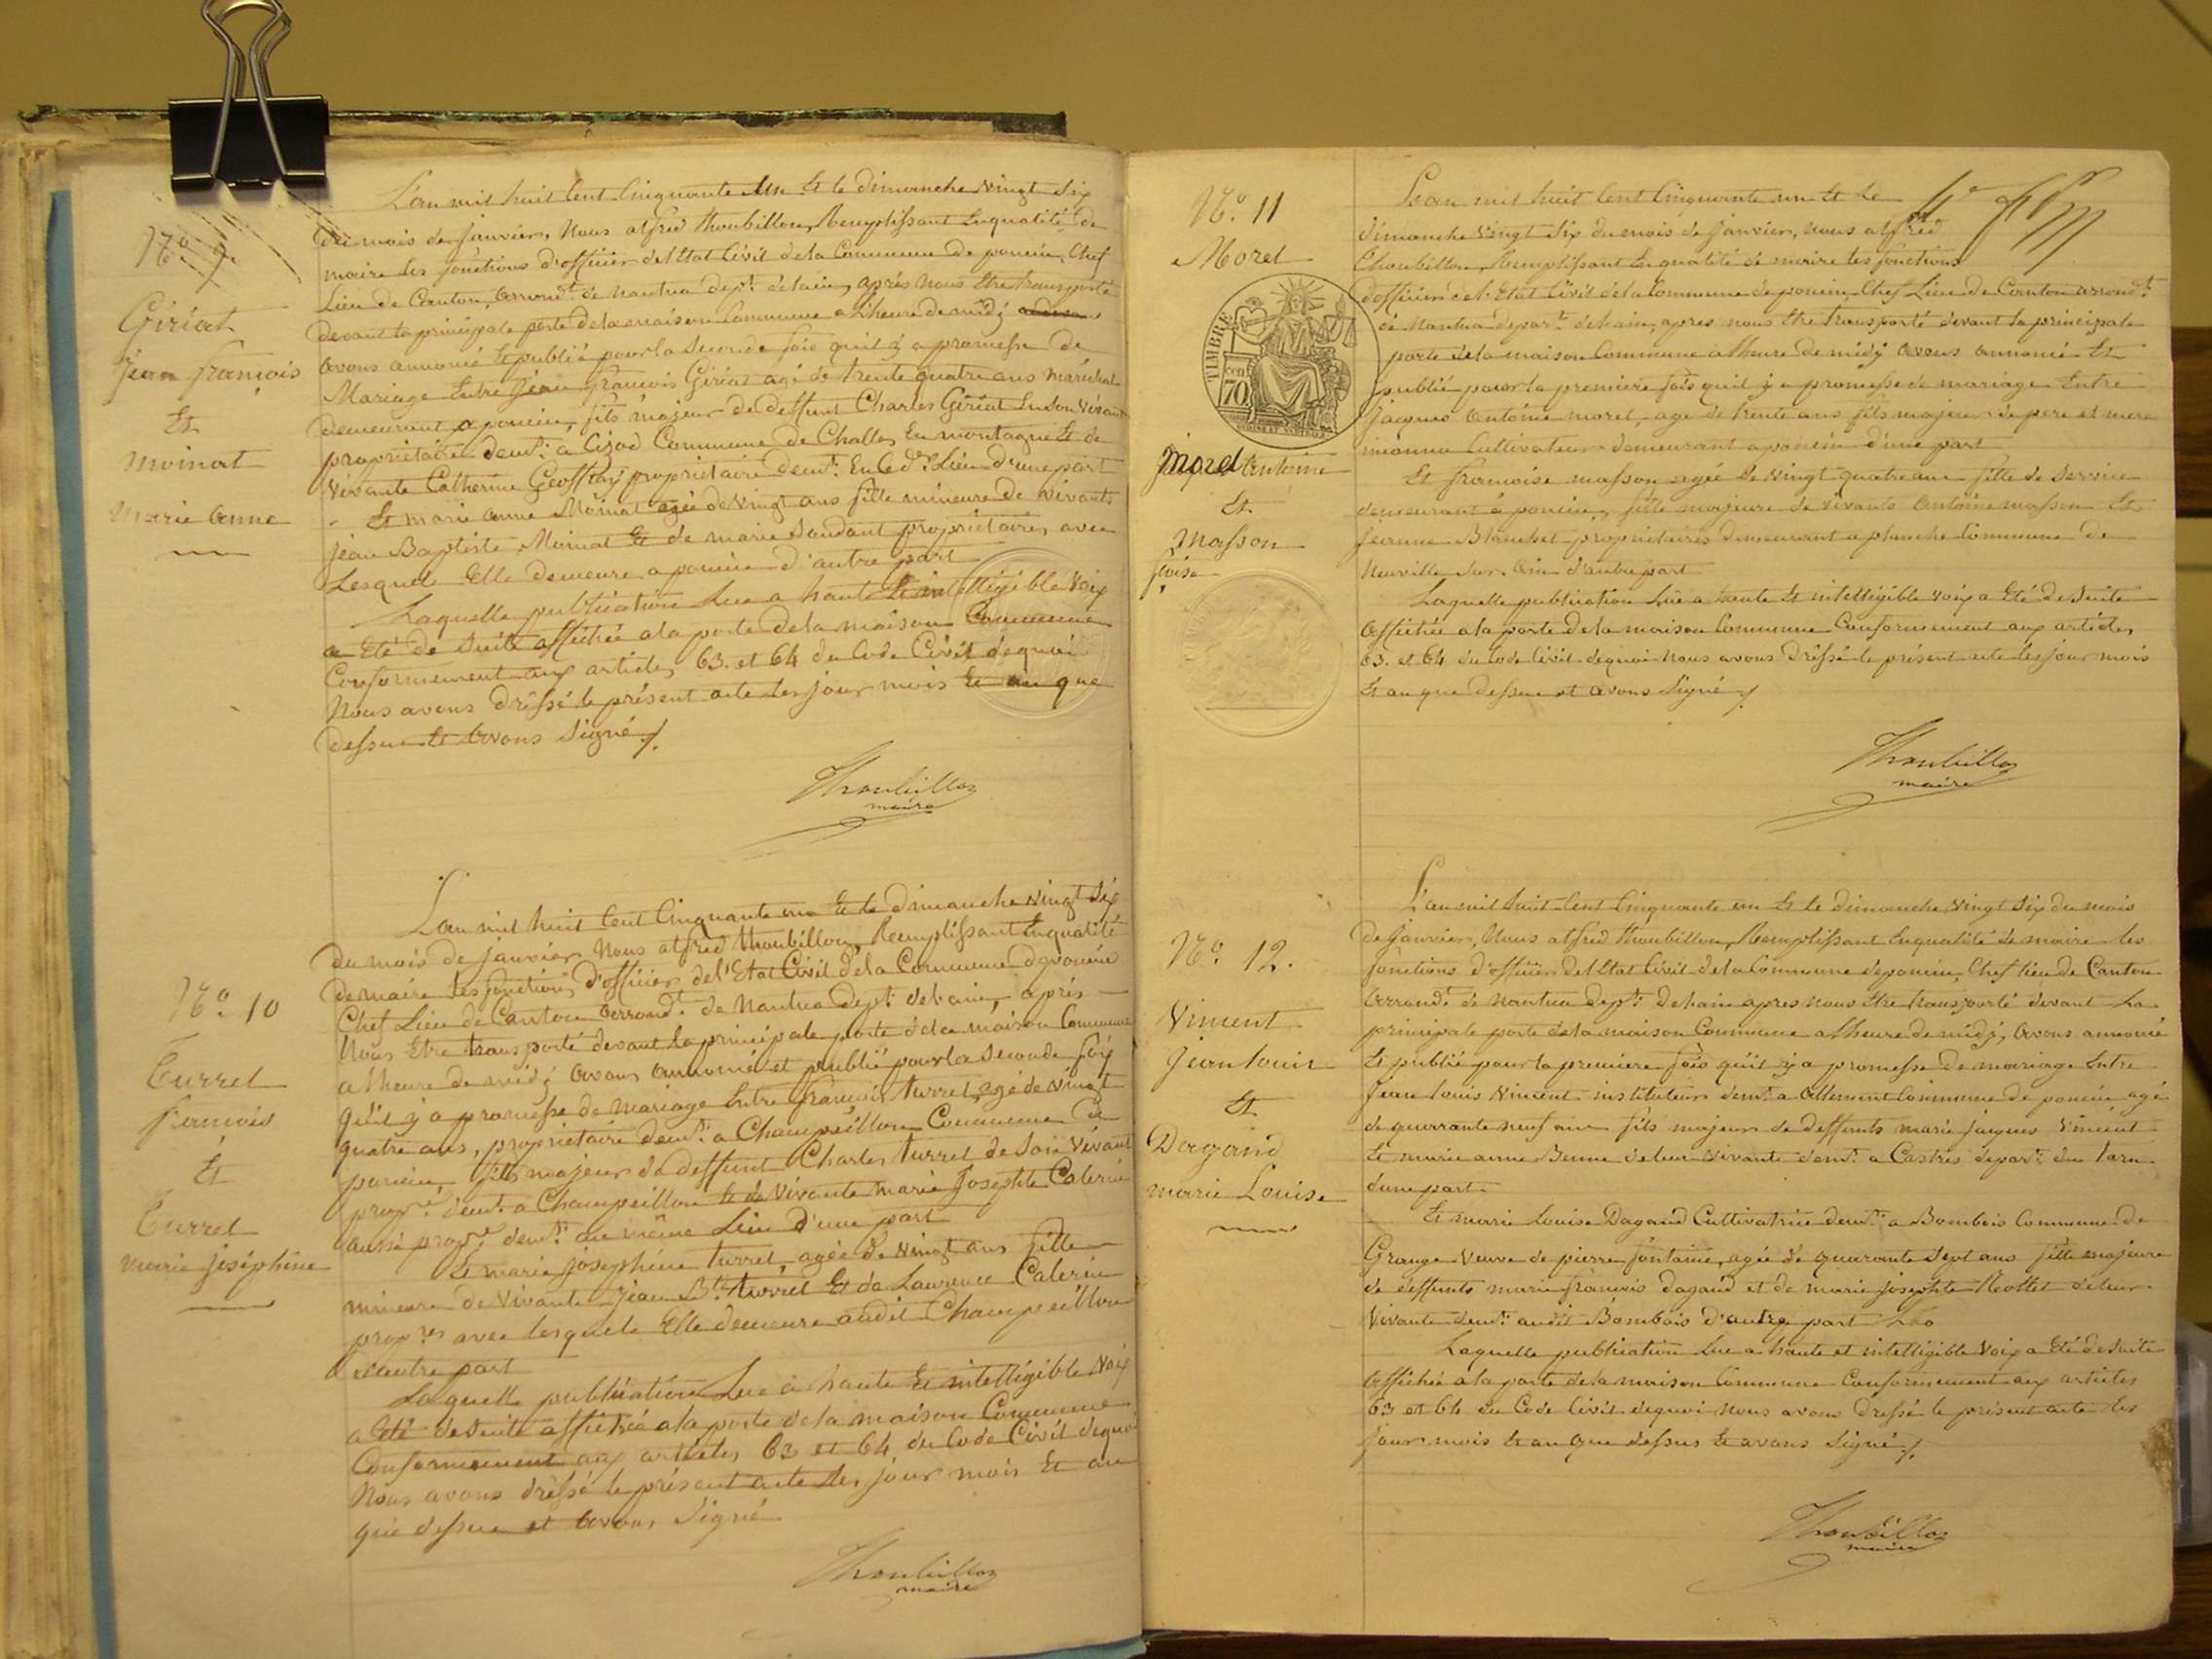 N.º 9.
Giriat
jean françois
Et
moinat
marie anne
L'an mil huit Cent Cinquante Un Et le dimanche vingt Six
du mois de janvier, Nous alfred thoubillon, Remplissant En qualité de
maire les fonctions d'officier de l'Etat Civil de la Commune de poncin, Chef
Lieu de Canton, Arrondt. de nantua dept. de l'ain, après nous Etre transporté
devant la principale porte de la maison Commune a l'heure de midj
Avons annoncé Et publié pour la Seconde fois qu'il y a promesse de
Mariage Entre Jean françois Giriat agé de trente quatre ans maréchal
demeurant a poncin, fils majeur de deffunt Charles Giriat En Son vivant
propriétaire demt. a Cizod Commune de Challes En montagne Et de
vivante Catherine Geoffray propriétaire demt. En Ce dr. Lieu d'une part
Et marie anne Moinat agée de vingt ans fille mineure de vivants
jean Baptiste Moinat Et de marie Saudant propriétaires, avec
Lesquels Elle demeure a poncin d'autre part
Laquelle publication Lue a haute Et intelligible Voix
a Eté de Suite affichée a la porte de la maison Commune
Conformement aux articles 63. et 64 du Code Civil de quoi
Nous avons dréssé le présent acte les jour mois Et an que
dessus Et Avons Signé /.
Thoubillon
maire
N.º 10
Turrel
francois
Et
Turrel
marie joséphine
L'an mil huit Cent Cinquante un Et le dimanche vingt Six
du mois de janvier Nous alfred thoubillon, Remplissant En qualité
de maire les fonctions d'officier de l'Etat Civil de la Commune de poncin
Chef Lieu de Canton Arrondt. de Nantua dept. de l'ain, après
Nous Etre transporté devant la principale porte de la maison Commune
a l'heure de midj Avons annoncé et publié pour la Seconde foix
qu'il y a promesse de mariage Entre françois turrel, agé de vingt
quatre ans, propriétaire demt. a Champeillon Commune de
poncin, fils majeur de deffunt Charles turrel de Son vivant
propre. demt. a Champeillon Et de vivante marie Josephte Calerin
aussi propre. demt. au même Lieu d'une part
Et marie joséphine turrel, agée de vingt ans fille
mineure de vivants jean Bte. turrel Et de Laurence Calerin
propres avec lesquels Elle demeure audit Champeillon
d'autre part
Laquelle publication Lue à haute Et intelligible Voix
a Eté de Suite affichée a la porte de la maison Commune
Conformement aux articles 63 et 64 du Code Civil de quoi
Nous avons dréssé le présent acte les jour mois Et an
que dessus et Avons Signé
Thoubillon
maire
N.º 11
Morel
TIMBRE
cen
70
Antoine
Et
Masson
fçoise
L'an mil huit Cent Cinquante un Et le
dimanche vingt Six du mois de janvier, nous alfred
thoubillon, Remplissant En qualité de maire les fonctions
d'officier de l'Etat Civil de la Commune de poncin, Chef Lieu de Canton arrondt.
de Nantua depart. de l'ain, apres nous Etre transporté devant la principale
porte de la maison Commune a l'heure de midj avons annoncé Et
publié pour la premiere fois qu'il y a promesse de mariage Entre
jacques Antoine morel, agé de trente ans fils majeur de pere et mere
inconnu Cultivateur demeurant a poncin d'une part
Et francoise masson agée de vingt quatre ans fille de Service
demeurant à poncin, fille majeure de vivants Antoine masson Et
jeanne Blanchet propriétaires demeurant a planche Commune de
Neuville Sur. Ain d'autre part
Laquelle publication Lue a haute Et intelligible voix a Eté de Suite
affichée a la porte de la maison Commune Conformement aux articles
63. et 64 du Code Civil de quoi Nous avons dréssé le présent acte les jour mois
Et an que dessus et avons Signé /.
Thoubillon
maire
N.º 12.
Vincent
jean louis
Et
Dagand
marie Louise
L'an mil huit Cent Cinquante un Et le dimanche vingt Six du mois
de janvier, Nous alfred thoubillon, Remplissant En qualité de maire les
fonctions d'officier de l'Etat Civil de la Commune de poncin, Chef lieu de Canton
Arrondt. de nantua dept. De l'ain apres nous Etre transporté devant La
principale porte de la maison Commune a l'heure de midj, Avons annoncé
Et publié pour la premiere fois qu'il y a promesse de mariage Entre
jean louis Vincent instituteur demt. a Allement Commune de poncin agé
de quarante neuf ans fils majeur de deffunts marie jacques Vincent
Et marie anne Benne de leur vivants demt. a Castres depart. du tarn
d'une part
Et marie Louise Dagand Cultivatrice demt. a Bombois Commune de
Grange Veuve de pierre fontaine, agée de quarante Sept ans fille majeure
de deffunts marie francois dagand et de marie josephte de leur
Vivants demt. audit Bombois d'autre part
Laquelle publication Lue a haute et intelligible Voix a Eté de Suite
Affichée a la porte de la maison Commune Conformement aux articles
63 et 64 du Code Civil de quoi Nous avons dressé le présent acte les
jour mois Et an que dessus Et avons Signé /.
Thoubillon
maire